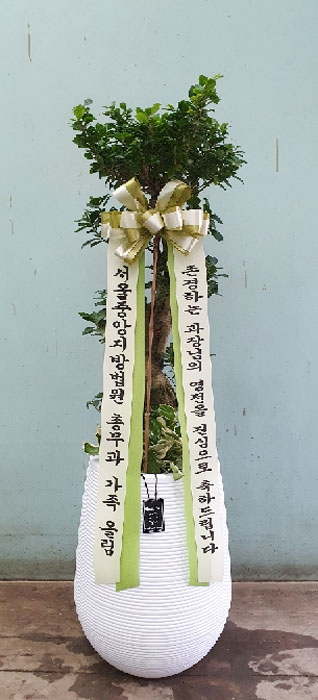 존경하는 과장님의 영전을 진심으로 축하드립니다
서울중앙지방법원 총무과 가족 올림